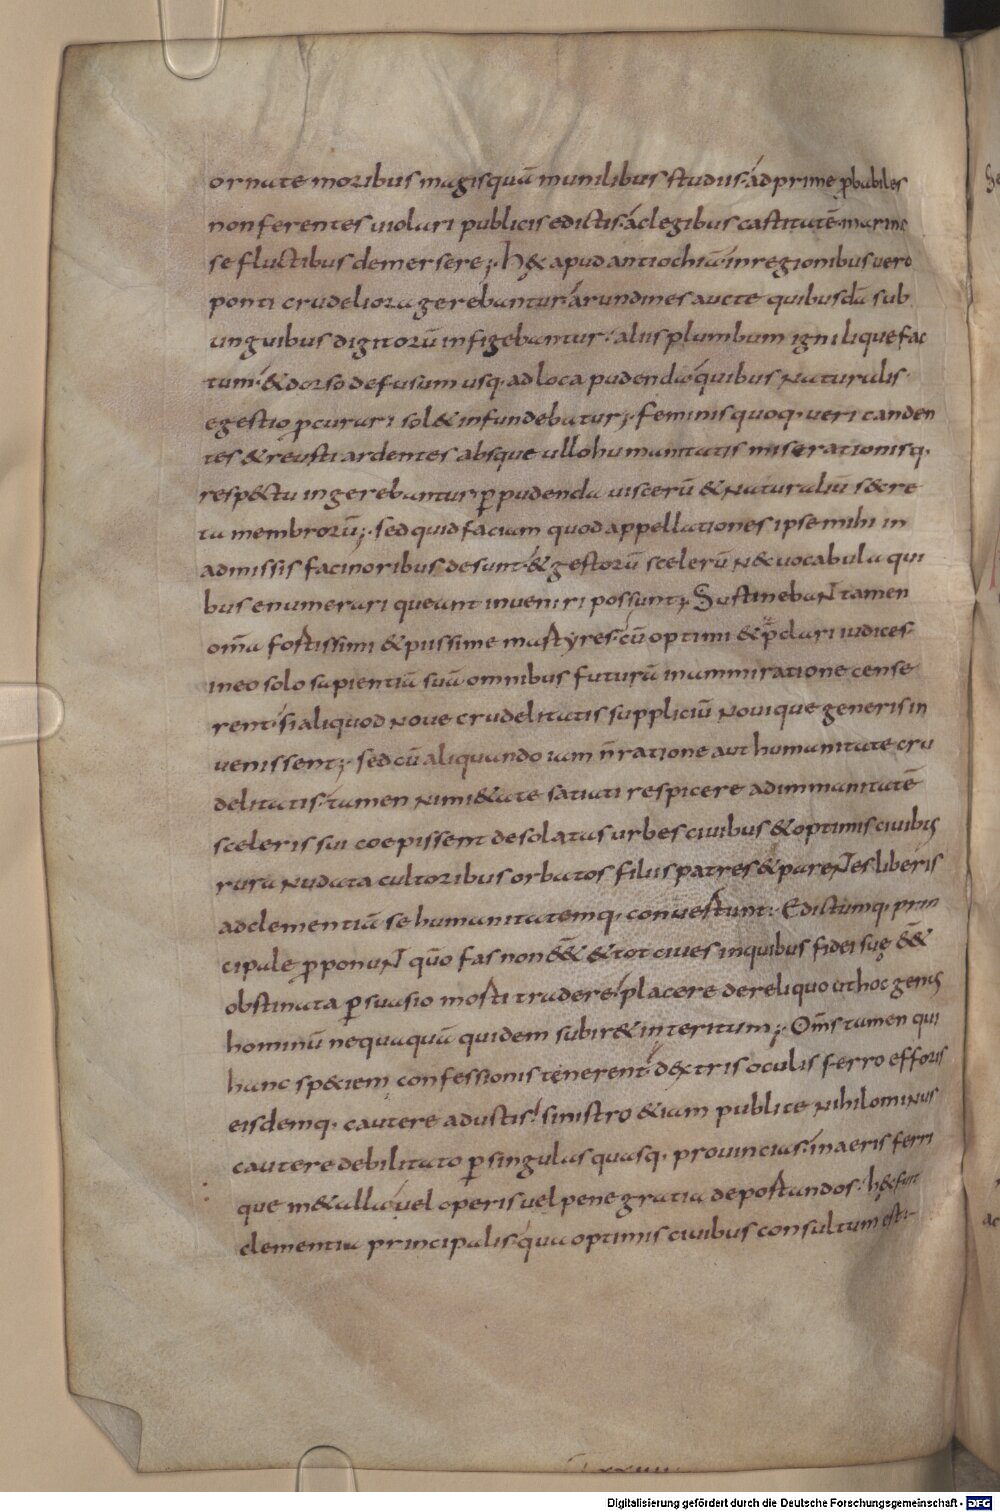 ornate moribus magisquā munilibus studiis. ad prime ꝓbabiles
non ferentes uiolari publicis edictis. ac legibus castitatē. marinis
se fluctibus demersere; H& apud antiochiā. in regionibus uero
ponti crudeliora gerebantur. arundines aucte quibusdā sub
unguibus digitorū infigebantur. aliis plumbum igni liquefac
tum. & dorso defusum usq. ad loca pudenda. quibus naturalis
egestio ꝓcurari sol& infundebatur; feminis quoq. ueri canden
tes & reusti ardentes absque ullo humanitatis miserationisq.
resp&tu ingerebantur ꝑ pudenda uiscerū & naturaliū s&cre
ta membrorū; sed quid faciam quod appellationes ipse mihi in
admissis facinoribus desunt. & gestorū scelerū n& uocabula qui
bus enumerari queant inueniri possunt; Sustinebant tamen
om̄a fortissimi & piissime martyres. cū optimi & p̄clari iudices
in eo solo sapientiā suā omnibus futurū in ammiratione cense
rent. si aliquod noue crudelitatis suppliciū nouique generis in
uenissent; sed cū aliquando iam n̄ ratione aut humanitate cru
delitatis. tamen nimi&ate satiati respicere ad immanitatē
sceleris sui coepissent desolatas urbes ciuibus & optimis ciuibus
rura nudata cultoribus orbatos filiis patres & parentes liberis
ad clementiā se humanitatemq. conuertunt. Edictumq. prin
cipale ꝓponunt qūo fas non e͞e& & tot ciues in quibus fidei suę e͞e&
obstinata ꝑsuasio morti tradere. placere de reliquo ut hoc genus
hominū nequaquā quidem subir& interitum; Om̄s tamen qui
hanc sp&iem confessionis tenerent. d&xtris oculis ferro effossis
eisdemq. cautere adustis. sinistro &iam publite nihilominus
cautere debilitato ꝑ singulas quasq. prouincias. in aeris ferri
que m&alla. uel operis uel pene gratia deportandos. h& fuit
clementia principalis. qua optimis ciuibus consultum est.
Digitalisierung gefördert durch die Deutsche Forschungsgemeinschaft - DFG